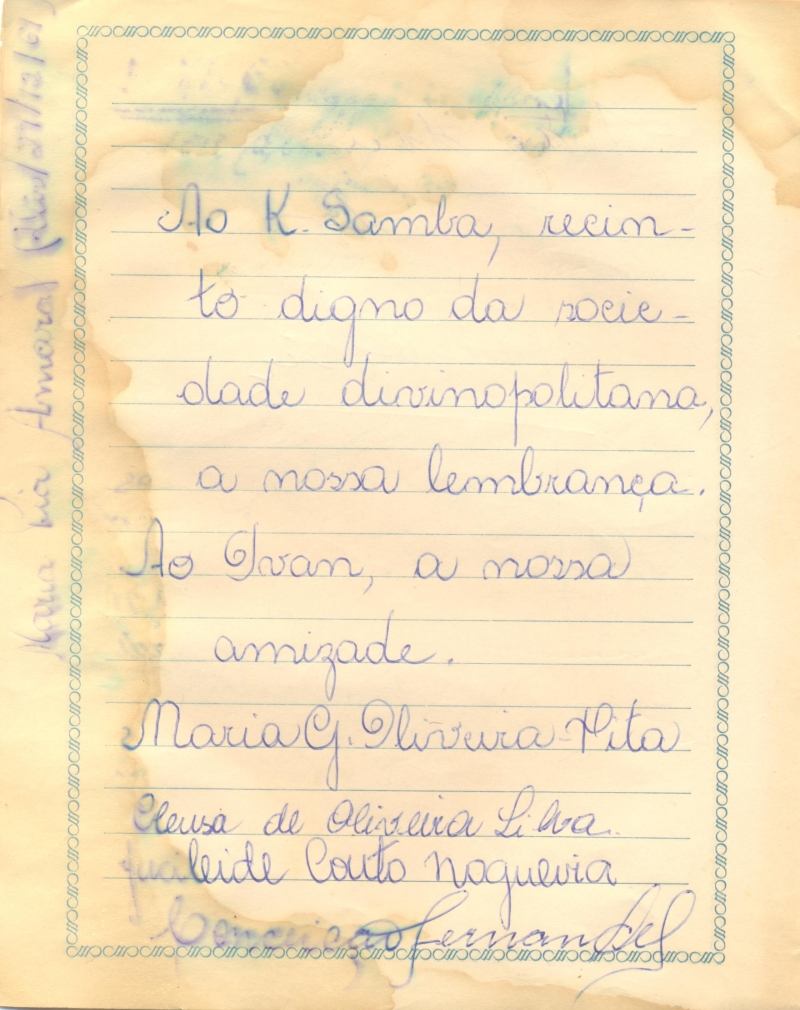 Ao K. Samba, recin-
to digno da socie-
dade divinopolitana,
a nossa lembrança.
Ao Ivan, a nossa
amizade.
Maria G. Oliveira-
Cleusa de Oliveira Silva.
leide Couto Nogueira
Conceição Fernandes
Maria Lia Amaral 27/12/67